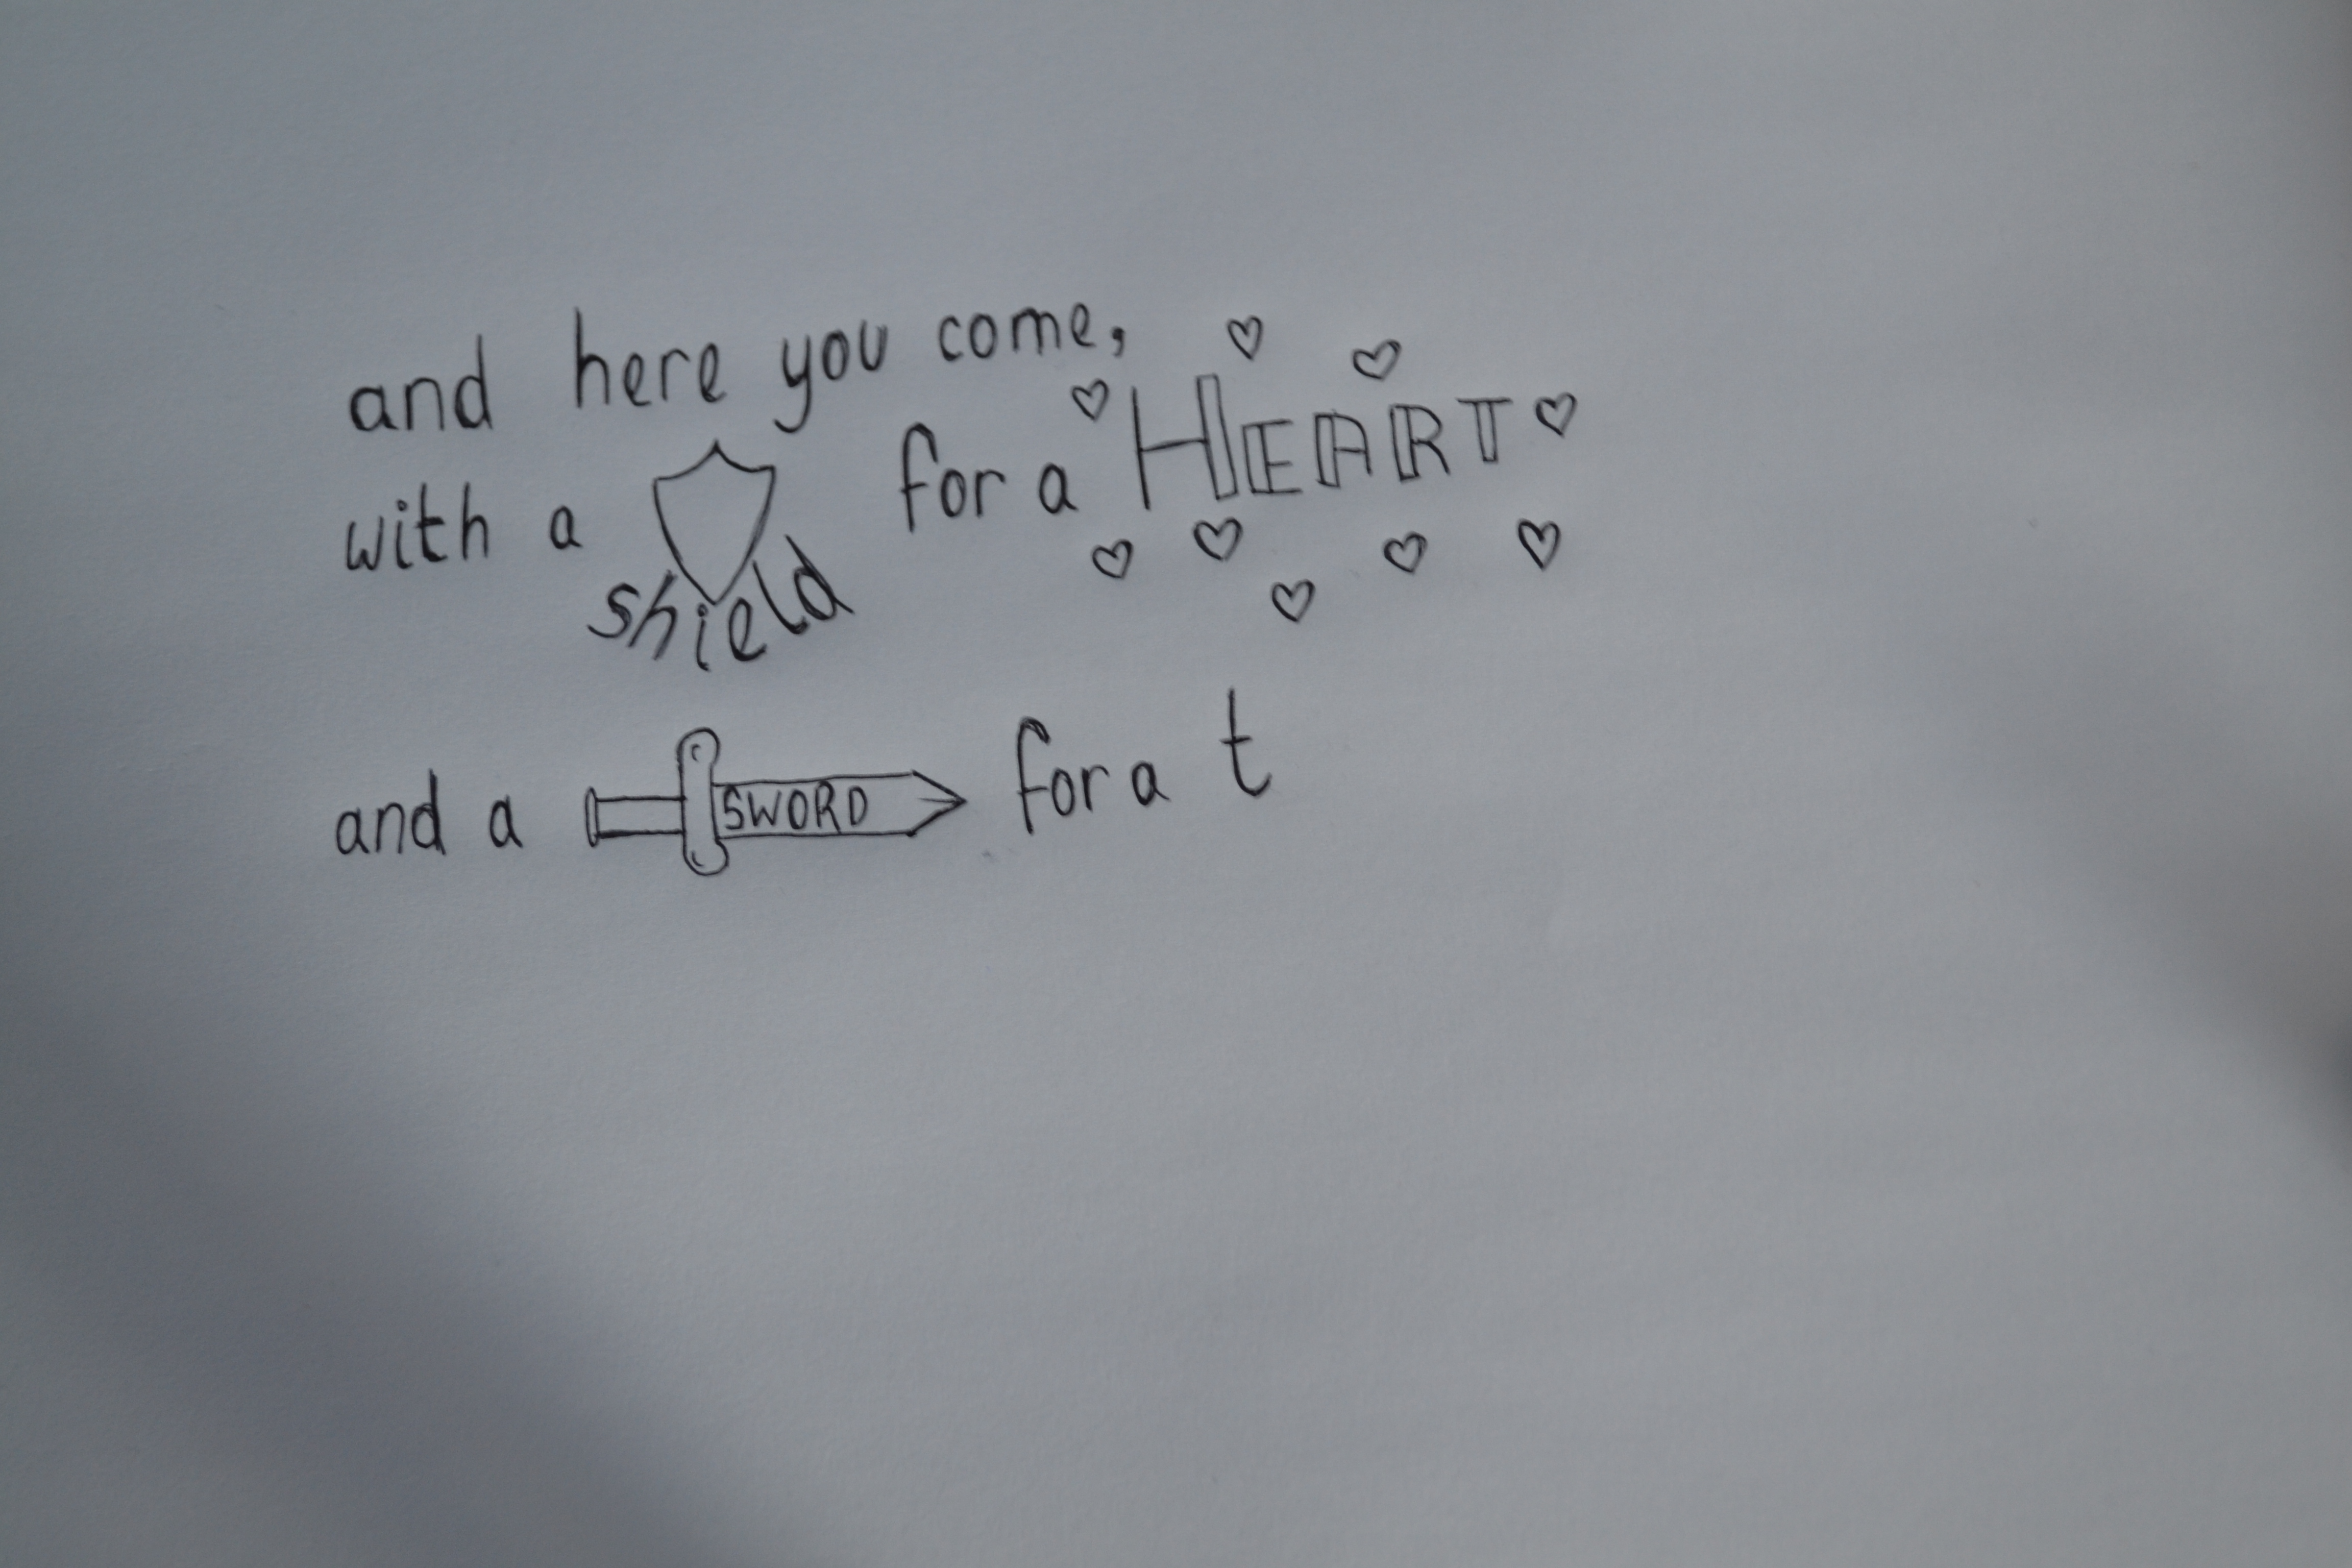 and here you come,
with a shield for a HEART
and a SWORD for a t